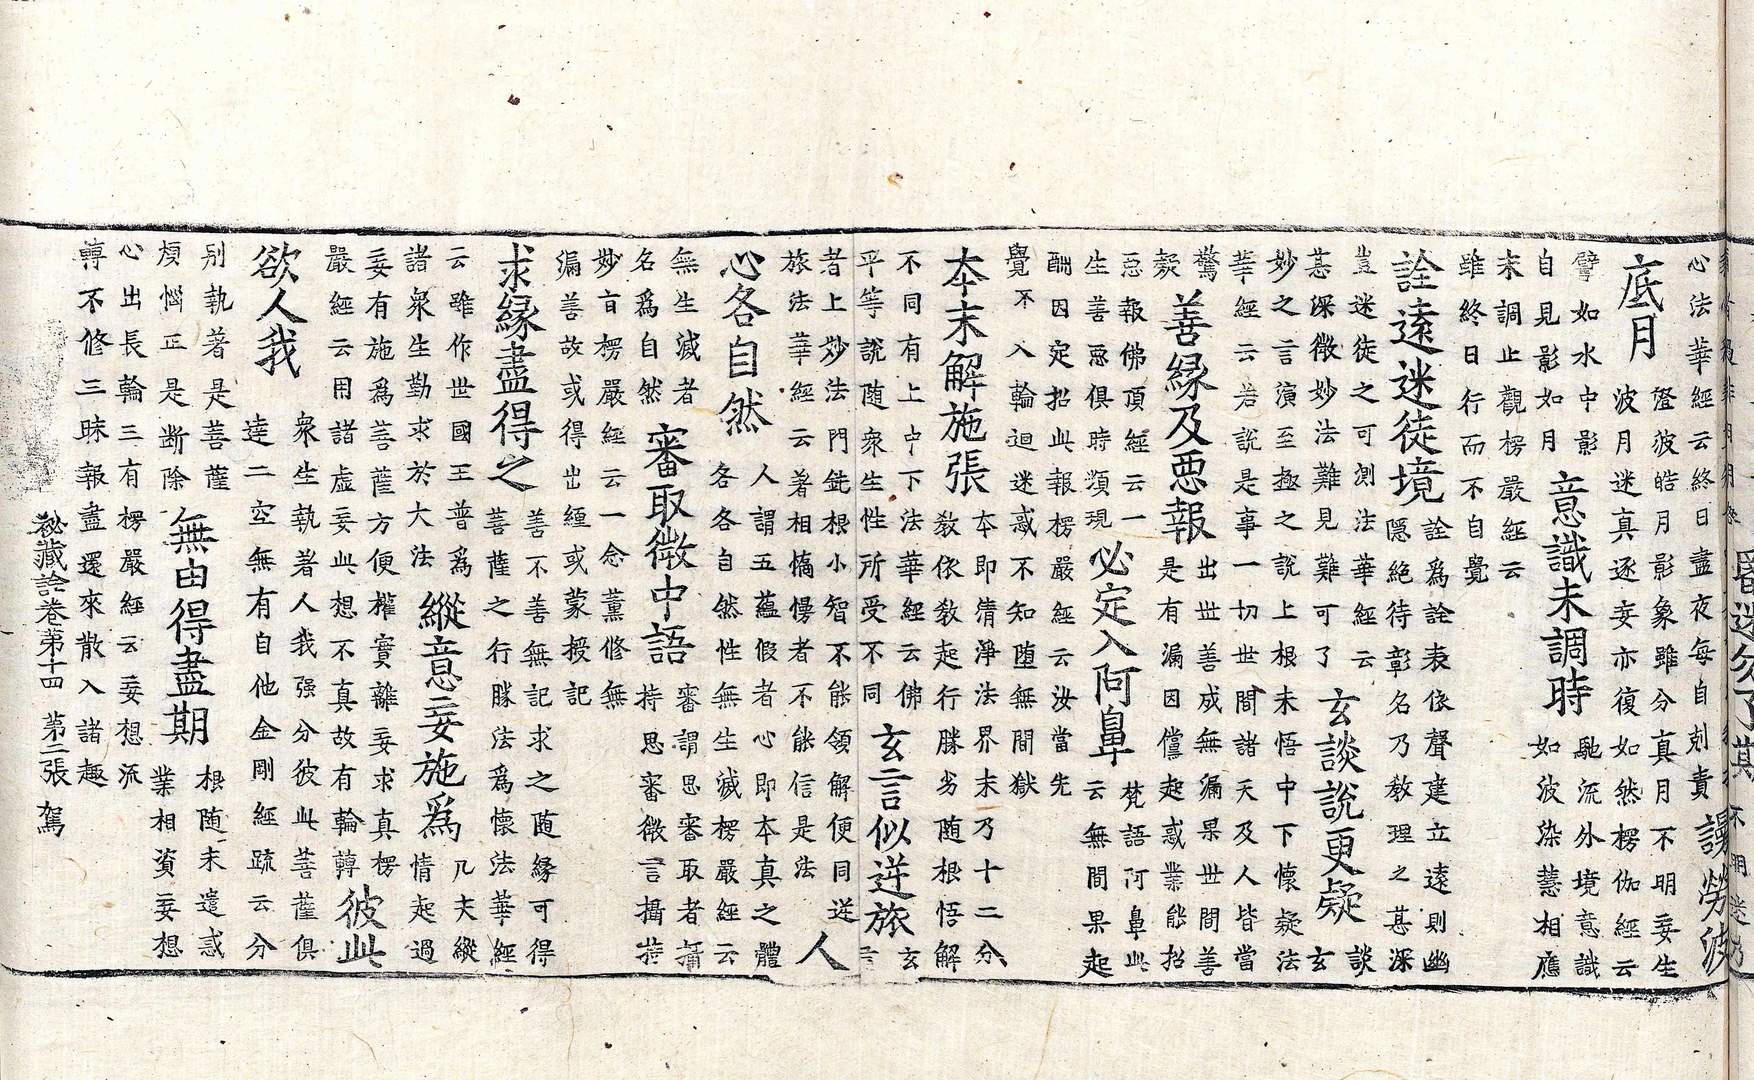 心法華經云終日盡夜每自剋責
謾勞波
底月
澄彼皓月影象雖分真月不明妄生
波月迷真逐妄亦復如然楞伽經云
譬如水中影
自見影如月
意識未調時
馳流外境意識
如波染慧相應
未調止觀楞嚴經云
雖終日行而不自覺
詮遠迷徒境
詮為詮表依聲建立遠則幽
隱絕待彰名乃教理之甚深
豈迷徒之可測法華經云
甚深微妙法難見難可了
玄談說更疑
談
玄
妙之言演至極之說上根未悟中下懷疑法
華經云若說是事一切世間諸天及人皆當
驚
疑
善緣及惡報
出世善成無漏果世間善
是有漏因儻起惑業能招
惡報佛頂經云一
生善惡俱時頓現
必定入阿鼻
梵語阿鼻此
云無間果起
酬因定招此報楞嚴經云汝當先
覺不入輪迴迷惑不知墮無間獄
本末解施張
本即清淨法界末乃十二分
教依教起行勝劣随根悟解
不同有上中下法華經云佛
平等說随眾生性所受不同
玄言似逆旅
玄
言
者上妙法門銳根小智不能領解便同逆
旅法華經云著相憍慢者不能信是法
人
心各自然
人謂五蘊假者心即本真之體
各各自然性無生滅楞嚴經云
無生滅者
名為自然
審取微中語
審謂思審取者攝
持思審微言攝持
妙旨楞嚴經云一念薰修無
漏善故或得出纏或蒙授記
求緣盡得之
善不善無記求之随緣可得
菩薩之行勝法為懷法華經
云雖作世國王普為
諸眾生勤求於大法
縱意妄施為
凡夫縱
情起過
妄有施為菩薩方便權實離妄求真楞
嚴經云用諸虛妄此想不真故有輪轉
彼此
欲人我
眾生執著人我强分彼此菩薩俱
達二空無有自他金剛經䟽云分
別執著是菩薩
煩惱正是断除
無由得盡期
根随未遣惑
業相資妄想
心出長輪三有楞嚴經云妄想流
轉不修三昧報盡還來散入諸趣
秘藏詮卷第十四 第二張 駕